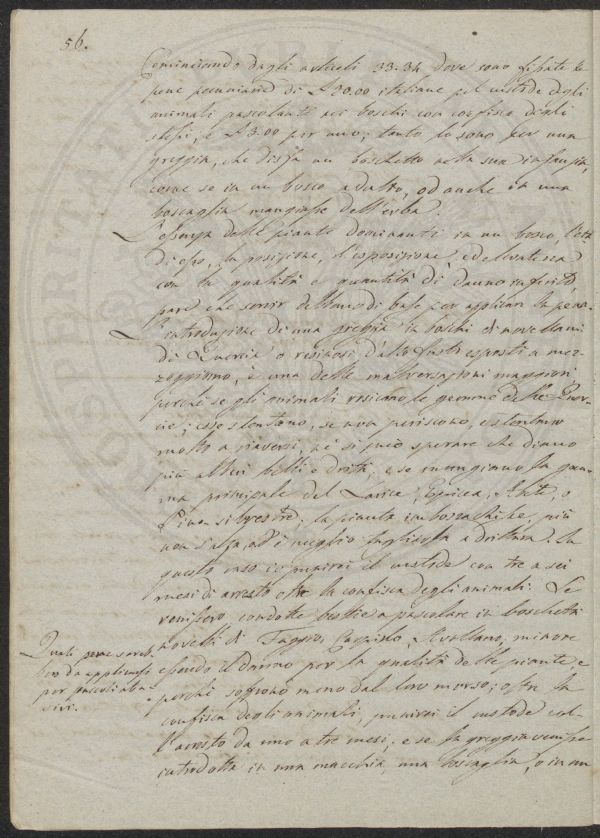 56.
Cominciando dagli articoli 33. 34 dove sono fissate le
pene pecuniarie di £ 20.00 italiane pel custode degli
animali pascolanti nei boschi con confisca degli
stessi, e £ 3.00 per uno; tanto lo sono per una
greggia, che disfa un boschetto nella sua infanzia,
come se in un bosco adulto, od anche in una
boscaglia mangiasse dell'erba.
L'essenza delle piante dominanti in un bosco, l'età
di esso, la posizione, l'esposizione, ed elevatezza
con la qualità e quantità di danno inferito,
pare che servir debbano di base per applicare la pena.
L'introduzione di una greggia in boschi di novellami
di Quercia o resinosi d'alto fusto esposti a mez-
zogiorno, è una delle malversazioni maggiori
perché se gli animali rosicano le gemme delle Quer-
cie; esse stentano, se non periscono, e stentano
molto a riaversi, né si può sperare che diano
più alberi belli e dritti, e se mangiano la gem-
ma principale del Larice, Epicea, Abete, o
Pino silvestre, la pianta imboschisce, più
non s'alza, ed è meglio tagliarla a drittura. In
questo caso si punirei il custode con tre a sei
mesi di arresto oltre la confisca degli animali. Se
venissero condotte bestie a pascolare in boschetti
novelli di Faggio, Carpino, Avellano, minore
essendo il danno per la qualità delle piante, e
perché soffrono meno dal loro morso; oltre la
confisca degli animali, punirei il custode col-
l'arresto da uno a tre mesi; e se la greggia venisse
introdotta in una macchia, una boscaglia, o in un
Quali pene sareb-
bero da applicarsi
per pascoli abu-
sivi.